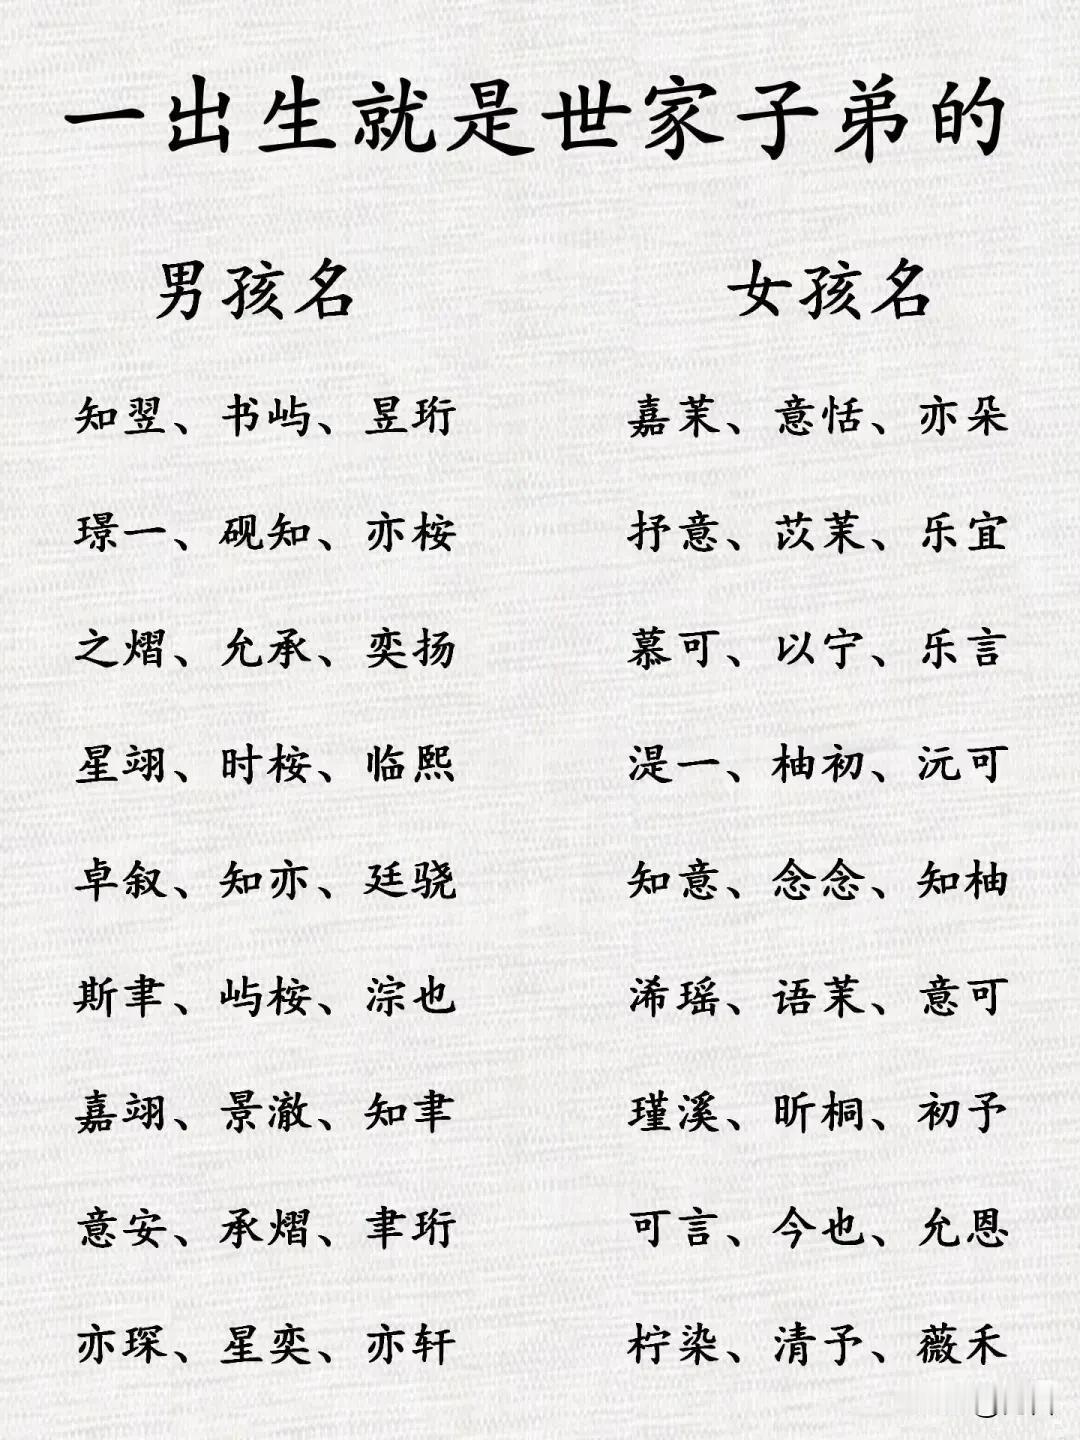 一出生就是世家子弟的
男孩名 女孩名
知翌、书屿、昱珩 嘉茉、意恬、亦朵
璟一、砚知、亦桉 抒意、苡茉、乐宜
之熠、允承、奕扬 慕可、以宁、乐言
星翊、时桉、临熙 湜一、柚初、沅可
卓叙、知亦、廷骁 知意、念念、知柚
斯聿、屿桉、淙也 浠瑶、语茉、意可
嘉翊、景澈、知聿 瑾溪、昕桐、初予
意安、承熠、聿珩 可言、今也、允恩
亦琛、星奕、亦轩 柠染、清予、薇禾